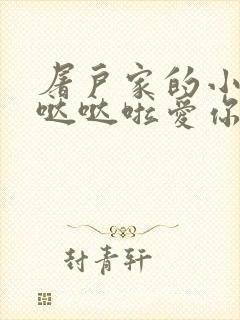 屠户家的小
哒哒啦爱你
封青轩